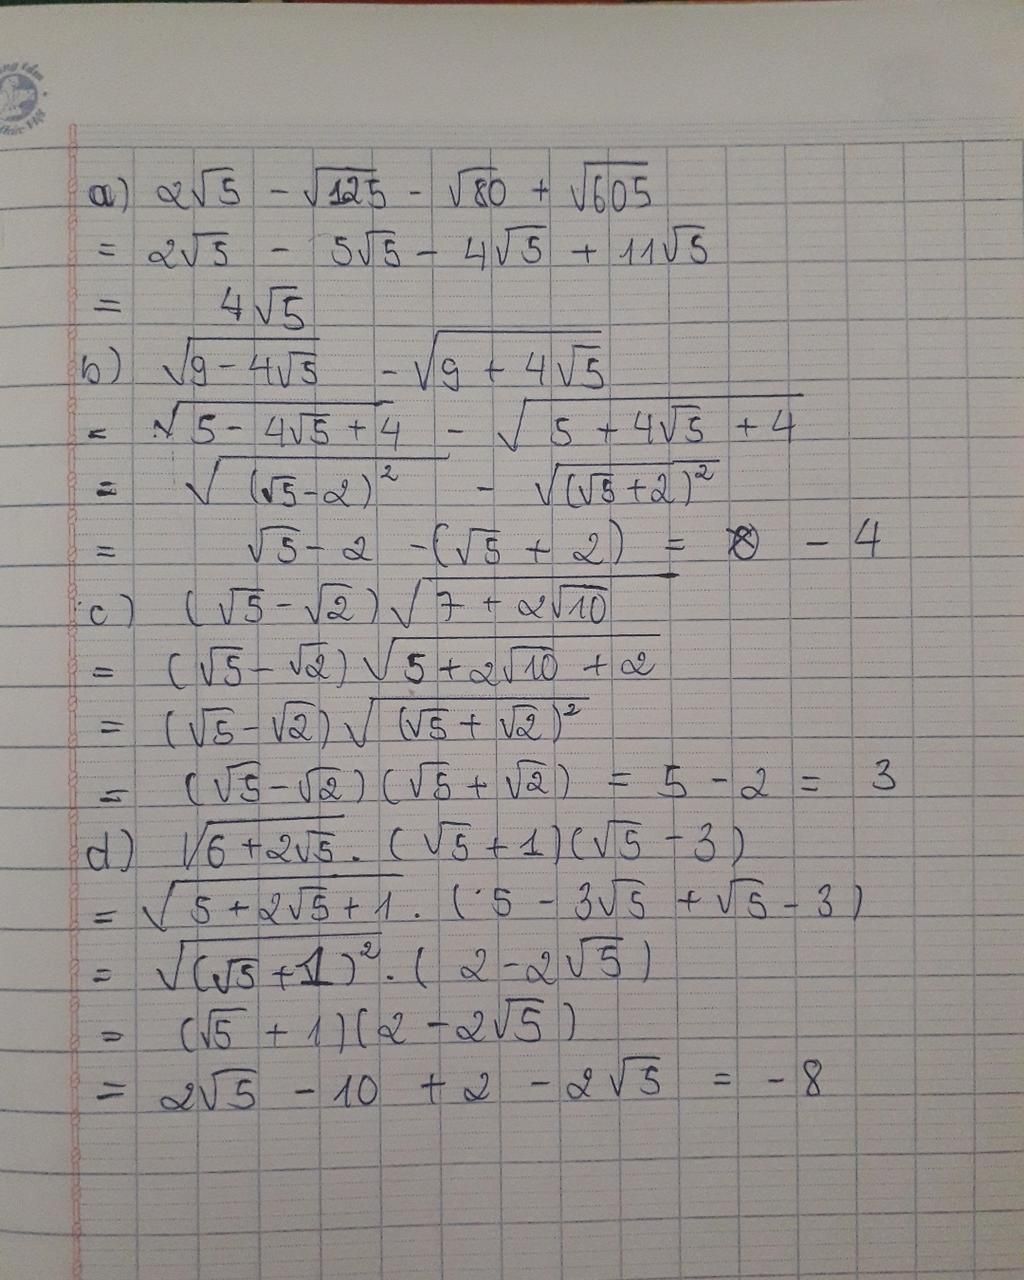 a) 2√5 - √125 - √80 + √605
= 2√5 - 5√5 - 4√5 + 11√5
= 4√5
b) √(9 - 4√5) - √(9 + 4√5)
= √(5 - 4√5 + 4) - √(5 + 4√5 + 4)
= √((√5 - 2)²) - √((√5 + 2)²)
= √5 - 2 - (√5 + 2) = - 4
c) (√5 - √2) √(7 + 2√10)
= (√5 - √2) √(5 + 2√10 + 2)
= (√5 - √2) √((√5 + √2)²)
= (√5 - √2) (√5 + √2) = 5 - 2 = 3
d) √(6 + 2√5) . (√5 + 1)(√5 - 3)
= √(5 + 2√5 + 1) . (5 - 3√5 + √5 - 3)
= √((√5 + 1)²) . (2 - 2√5)
= (√5 + 1)(2 - 2√5)
= 2√5 - 10 + 2 - 2√5 = - 8